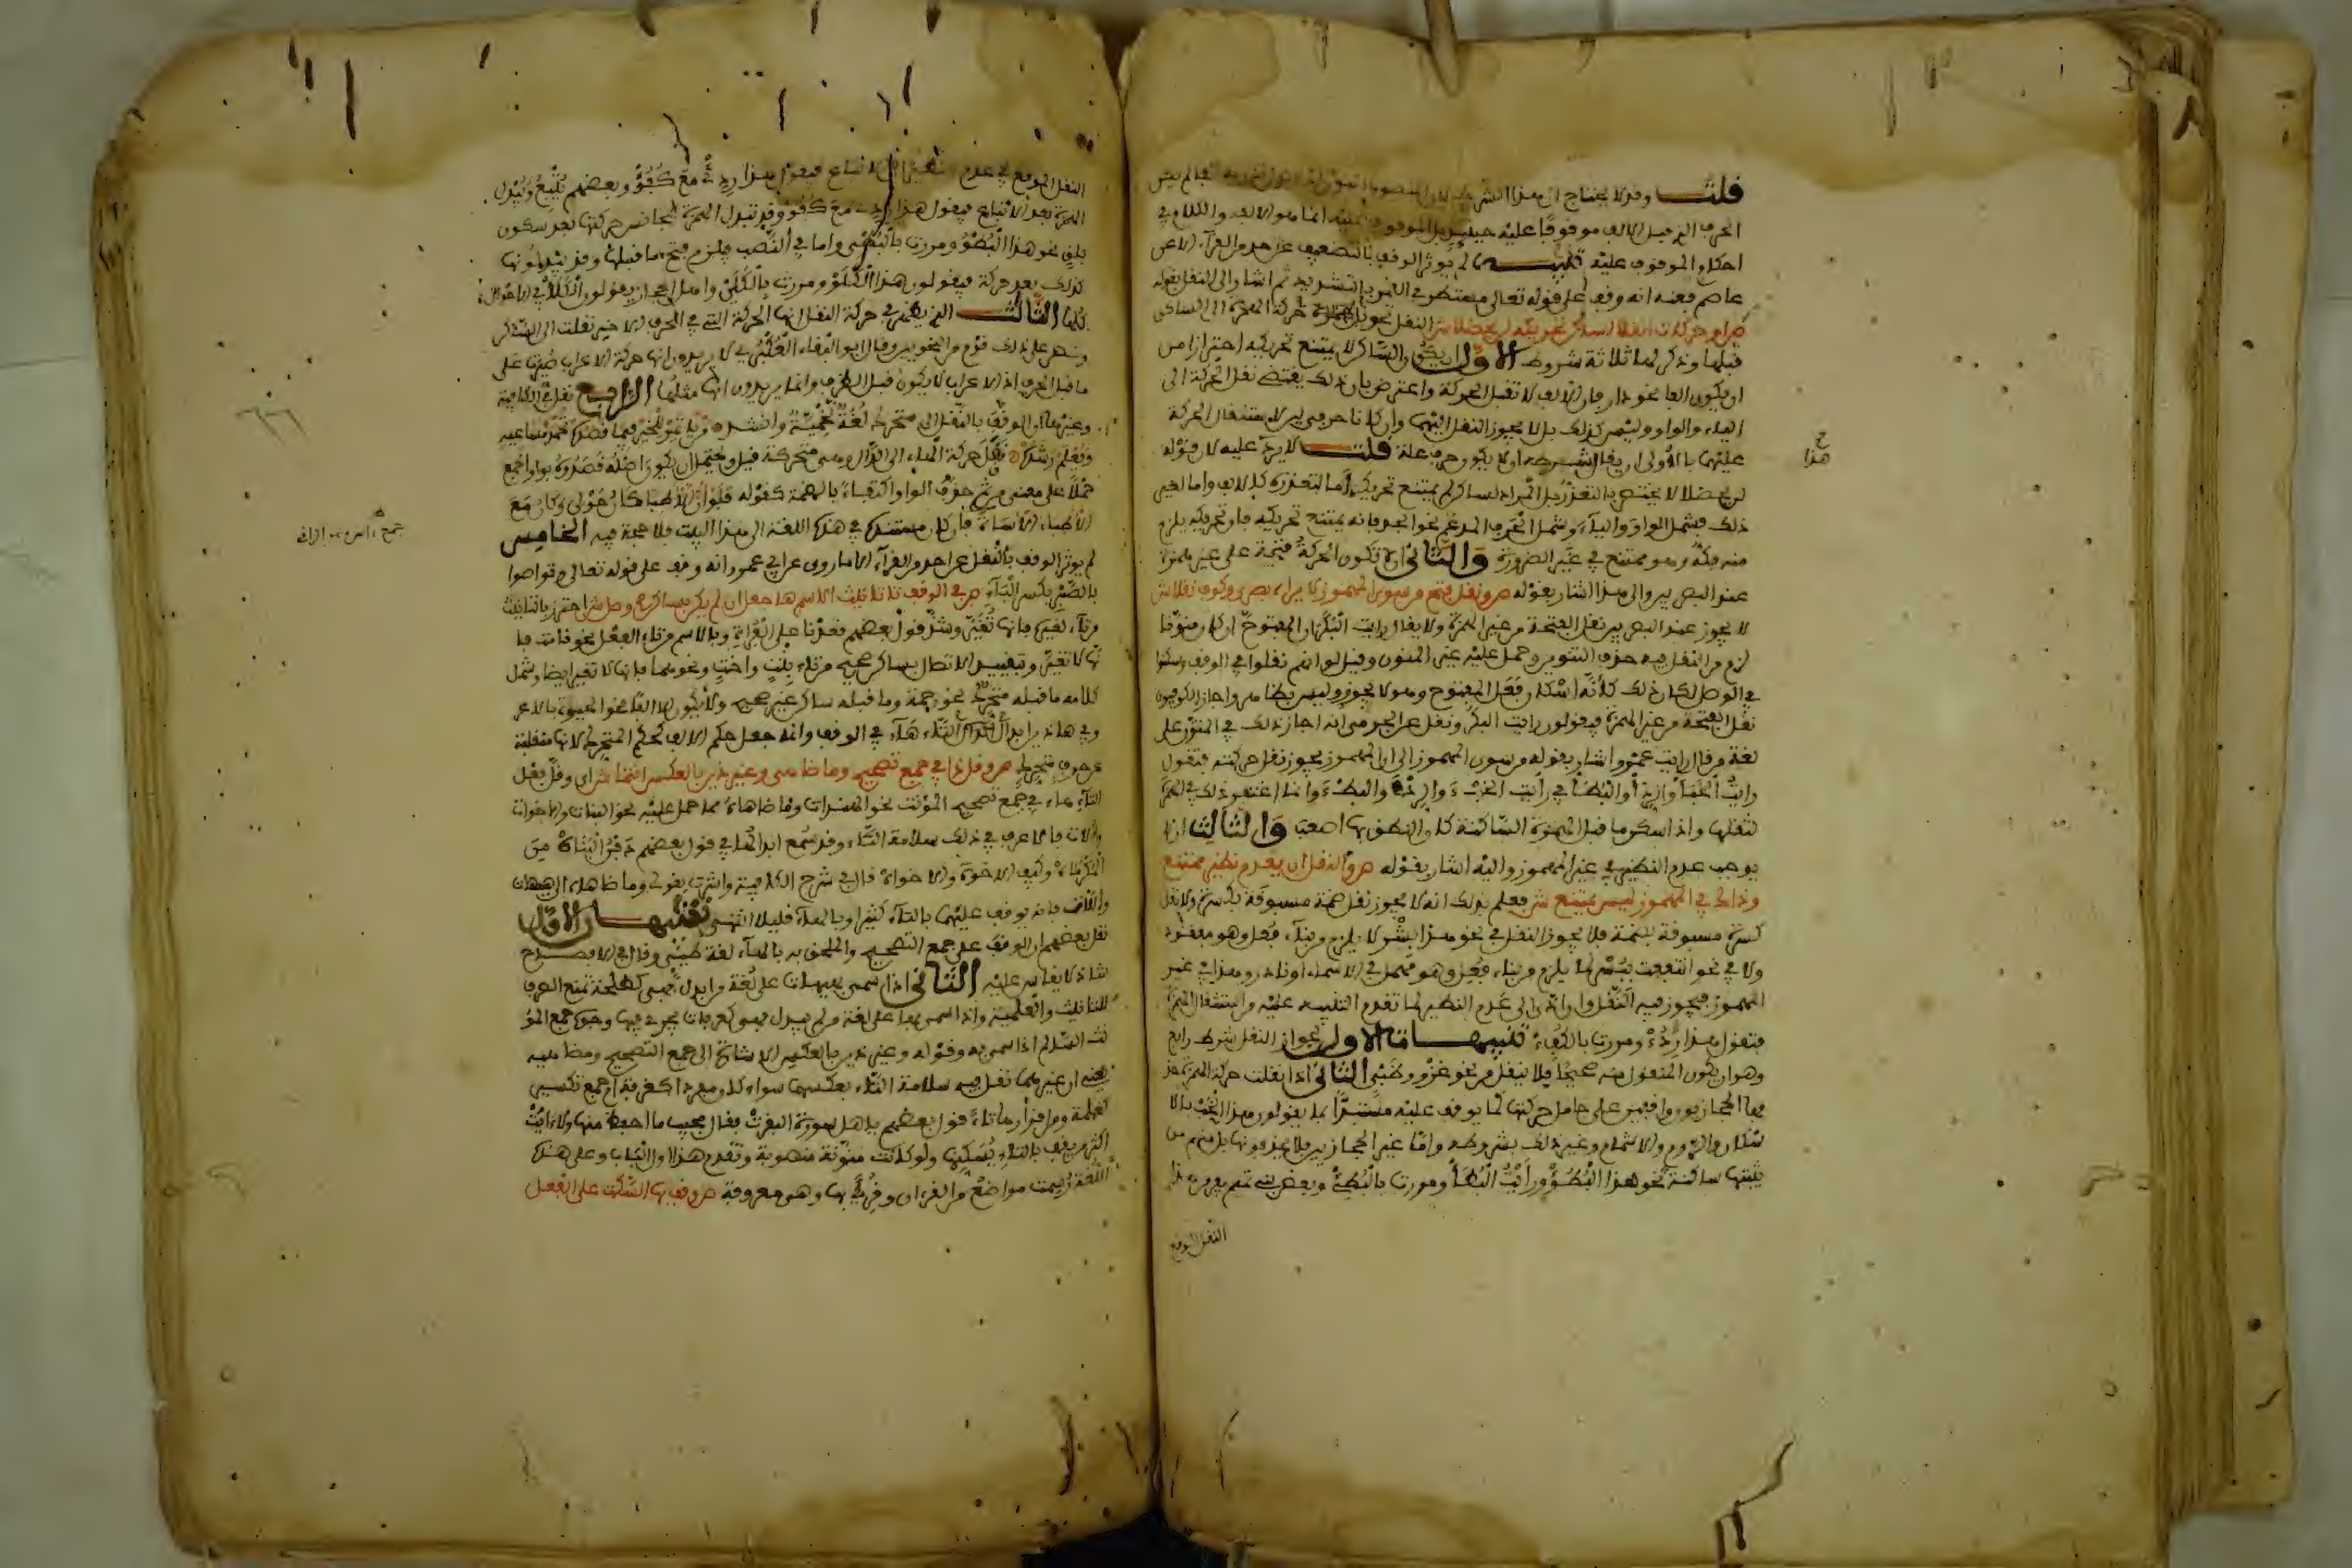 قلت وقد لا يحتاج الى هذا
الحرف الذي قبل الالف موقوفا عليه حينئذ بل الموقوف عليه انما هو الالف والكلام في
احكام الموقوف عليه تنبيه لم يؤثر الوقف بالتضعيف عن احد من القراء الا عن
عاصم فعنه انه وقف على قوله تعالى مستطر في القمر بالتشديد ثم اشار الى النقل بقوله
النقل تحويل حركة الهمزة الى الساكن
قبلها وذكر لها ثلاثة شروط الاول ان يكون الساكن لا يمتنع تحريكه احترازا من
ان يكون الفا نحو دار فان الالف لا تقبل الحركة واعترض بان ذلك يقتضي نقل الحركة الى
الياء والواو وليس كذلك بل لا يجوز النقل اليهما وان كانا حرفي لين لاستثقال الحركة
عليهما بالاولى ان يقال شرطه ان لا يكون حرف علة قلت لا يرد عليه لان قوله
لن يحظلا لا يختص بالتعذر بل المراد لساكن لم يمتنع تحريكه اما لتعذره كالالف واما لغير
ذلك فيشمل الواو والياء وشمل الحرف المدغم نحو الجد فانه يمتنع تحريكه فان تحريكه يلزم
منه فكه وهو ممتنع في غير الضرورة والثاني ان لا تكون الحركة فتحة على غير همزة
عند البصريين والى هذا اشار بقوله ص ونقل فتح من سوى المهموز لا يراه بصري وكوف نقلا ش
لا يجوز عند البصريين نقل الفتحة من غير الهمزة ولا يقال رايت البكر اذ المفتوح ان كان منونا
لزم من النقل فيه حذف التنوين وحمل عليه غير المنون وقيل لو انهم نقلوا في الوقف وسكنوا
في الوصل لكان ذلك كأنه اسكان فعل المفتوح وهو لا يجوز وليس بظاهر واجاز الكوفيون
نقل الفتحة من غير الهمزة فيقولون رايت البكر ونقل عن الجرمي انه اجاز ذلك في المنون على
لغة من قال رايت عمرو واشار بقوله من سوى المهموز الى ان المهموز يجوز نقل حركته فتقول
رايت الخبأ والردأ والبطأ في رايت الخبء والردء والبطء وانما اغتفر ذلك في الهمزة
لثقلها واذا سكن ما قبل الهمزة الساكنة كان النطق بها اصعب والثالث ان لا
يوجب عدم النظير في غير المهموز واليه اشار بقوله ص والنقل ان يعدم نظير ممتنع
وذاك في المهموز ليس يمتنع ش فعلم بذلك انه لا يجوز نقل ضمة مسبوقة بكسرة ولا نقل
كسرة مسبوقة بضمة فلا يجوز النقل في نحو هذا بشر لما يلزم من بناء فعل وهو مفقود
ولا في نحو انتفعت ببسر لما يلزم من بناء فعل وهو مهمل في الاسماء او نادر وهذا في غير
المهموز فيجوز فيه النقل وان ادى الى عدم النظير لما تقدم التنبيه عليه من استثقال الهمزة
فتقول هذا ردء ومررت بالكفء تنبيهات الاول لجواز النقل شرط رابع
وهو ان يكون المنقول منه صحيحا فلا ينقل من نحو غزو وظبي الثاني اذا نقلت حركة الهمزة حذ
فها الحجازيون واقفين على حامل حركتها كما يوقف عليه مستبدا بها يقولون هذا الخب بالا
سكان والروم والاشمام وغير ذلك بشروطه واما غير الحجازيين فلا يحذفونها بل منهم من
يثبتها ساكنة نحو هذا البطؤ ورأيت البطأ ومررت بالبطئ
النقل الموقع
ح
هذا
النقل الموقع في عدم النظير الى الاتباع فيقول هذا ردئ مع كفؤ وبعضهم يتبع ويبدل
الهمزة بعد الاتباع فيقول هذا ردي مع كفو وقد تبدل الهمزة بمجانس حركتها بعد سكون
باق نحو هذا البطو ومررت بالبطي واما في النصب فيلزم فتح ما قبلها وقد يبدلونها
كذلك بعد حركة فيقولون هذا الكلو ومررت بالكلي واهل الحجاز يقولون الكلا في الاحوال
كلها الثالث الذي يظهر في حركة النقل انها الحركة التي في الحرف الاخير نقلت الى الساكن
ونص على ذلك قوم من النحويين وقال ابو البقاء العكبري لا يريدون انها حركة الاعراب صيرت على
ما قبل الحرف اذ الاعراب لا يكون قبل الطرف وانما يريدون انها مثلها الرابع نقل في الكافية
وغيرها ان الوقف بالنقل الى متحرك لغة لخمية وانشد من يأتمر للخير فيما قصده تحمد مساعيه
ويعلم رشده فنقل حركة الهاء الى الدال وهي متحركة قيل ويحتمل ان يكون اصله قصدوه بواو الجمع
حملا على معنى من ثم حذف الواو اكتفاء بالضمة كقوله فلو ان الاطبا كان حولي وكان مع
الاطباء الاساة فان كان مستندهم في هذه اللغة الى هذا البيت فلا حجة فيه الخامس
لم يؤثر الوقف بالنقل عن احد من القراء الا ما روي عن ابي عمرو انه وقف على قوله تعالى وتواصوا
بالصبر بكسر الباء ص في الوقف تا تانيث الاسم ها جعل ان لم يكن بساكن صح وصل ش احترز بالتانيث
من تاء لغيره فانها لا تغير وشذ قول بعضهم قعدنا على الفراه وبالاسم من تاء الفعل نحو قامت فا
نها لا تغير وبتقييد الاتصال بساكن صحيح من تاء بنت واخت ونحوهما فانها لا تغير ايضا وشمل
كلامه ما قبله متحرك نحو رحمة وما قبله ساكن غير صحيح ولا يكون الا الفا نحو الحياة بالاعر
وفي هاذين ابدال التاء هاء في الوقف وانما جعل حكم الالف كحكم المتحرك لانها منقلبة
عن حرف متحرك ص وقل ذا في جمع تصحيح وما ضاهى وغير ذين بالعكس انتمى ش اي وقل جعل
التاء هاء في جمع تصحيح المؤنث نحو الهندات وما ضاهاه مما حمل عليه نحو البنات والاخوات
والاعرف في ذلك سلامة التاء وقد سمع ابدالها في قول بعضهم دفن البناه من
المكرماه وكيف الاخوة والاخواه قال في شرح الكافية واشرت بقولي وما ضاهاه الى هيهات
واولات فانه يوقف عليهما بالتاء كثيرا وبالهاء قليلا انتهى تنبيهان الاول
نقل بعضهم ان الوقف على جمع التصحيح والملحق به بالهاء لغة طيئ وقال في الافصاح
شاذ لا يقاس عليه الثاني اذا سمي بهيهات على لغة من ابدل فهي كطلحة تمنع الصرف
للتانيث والعلمية واذا سمي بها على لغة من لم يبدل فهي كعرفات يجري فيها وجوه جمع المؤ
نث السالم اذا سمي به وقوله وغير ذين بالعكس الاشارة الى جمع التصحيح ومضاهيه
يعني ان غيرهما تقل فيه سلامة التاء بعكسهما سواء كان مفردا كغرفة او جمع تكسير
كغلمة ومن اقرارها تاء قول بعضهم يا اهل سورة البقرت فقال مجيب ما احفظ منها ولا ايت
اكثر من يقف بالتاء يسكنها ولو كانت منونة منصوبة وعلى هذه
اللغة رسمت مواضع من القران وقرئ بها وهي معروفة ص وقف بها السكت على الفعل